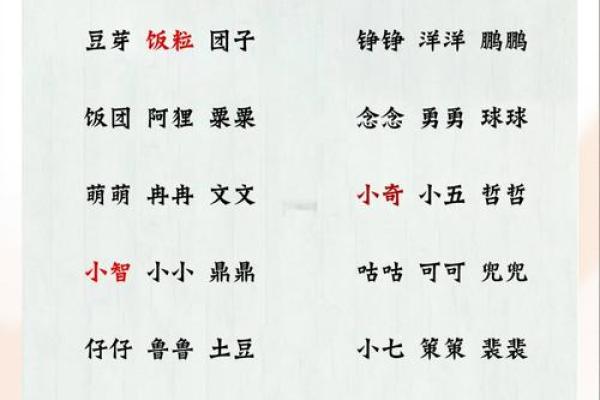 豆芽 饭粒 团子 铮铮 洋洋 鹏鹏
饭团 阿狸 粟粟 念念 勇勇 球球
萌萌 冉冉 文文 小奇 小五 哲哲
小智 小小 鼎鼎 咕咕 可可 兜兜
仔仔 鲁鲁 土豆 小七 策策 裴裴